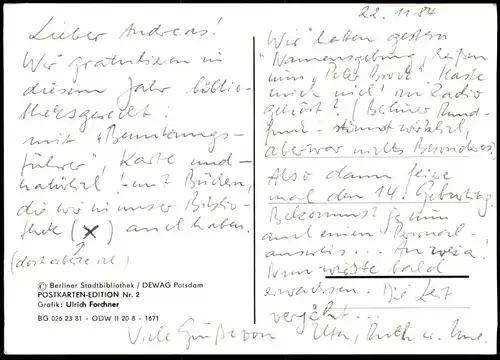 22.11.84
Lieber Andreas!
Wir gratulieren in
diesem Jahr biblio-
theksgerecht.
mit "Benutzungs-
führer", Karte und
natürlich! – 2 Büchern,
die wir in unser Biblio-
thek (x) auch haben.
(dort arbeite ich)
© Berliner Stadtbibliothek / DEWAG Potsdam
POSTKARTEN-EDITION Nr. 2
Grafik: Ulrich Forchner
BG 026 23 81 - ODW II 20 8 - 1671
Wir hatten gestern
"Namensgebung", heißen
nun "
mich im Radio
gehört? (Berliner Rund-
funk – stimmt wirklich,
aber war nichts Besonderes.
Also dann feiere
mal den 14. Geburtstag.
Bekommst ja nun
auch einen Personal-
ausweis... Au weia!
Nun wirste bald
erwachsen. Die Zeit
vergeht...
Viele Grüße von Uta, Ruth u.